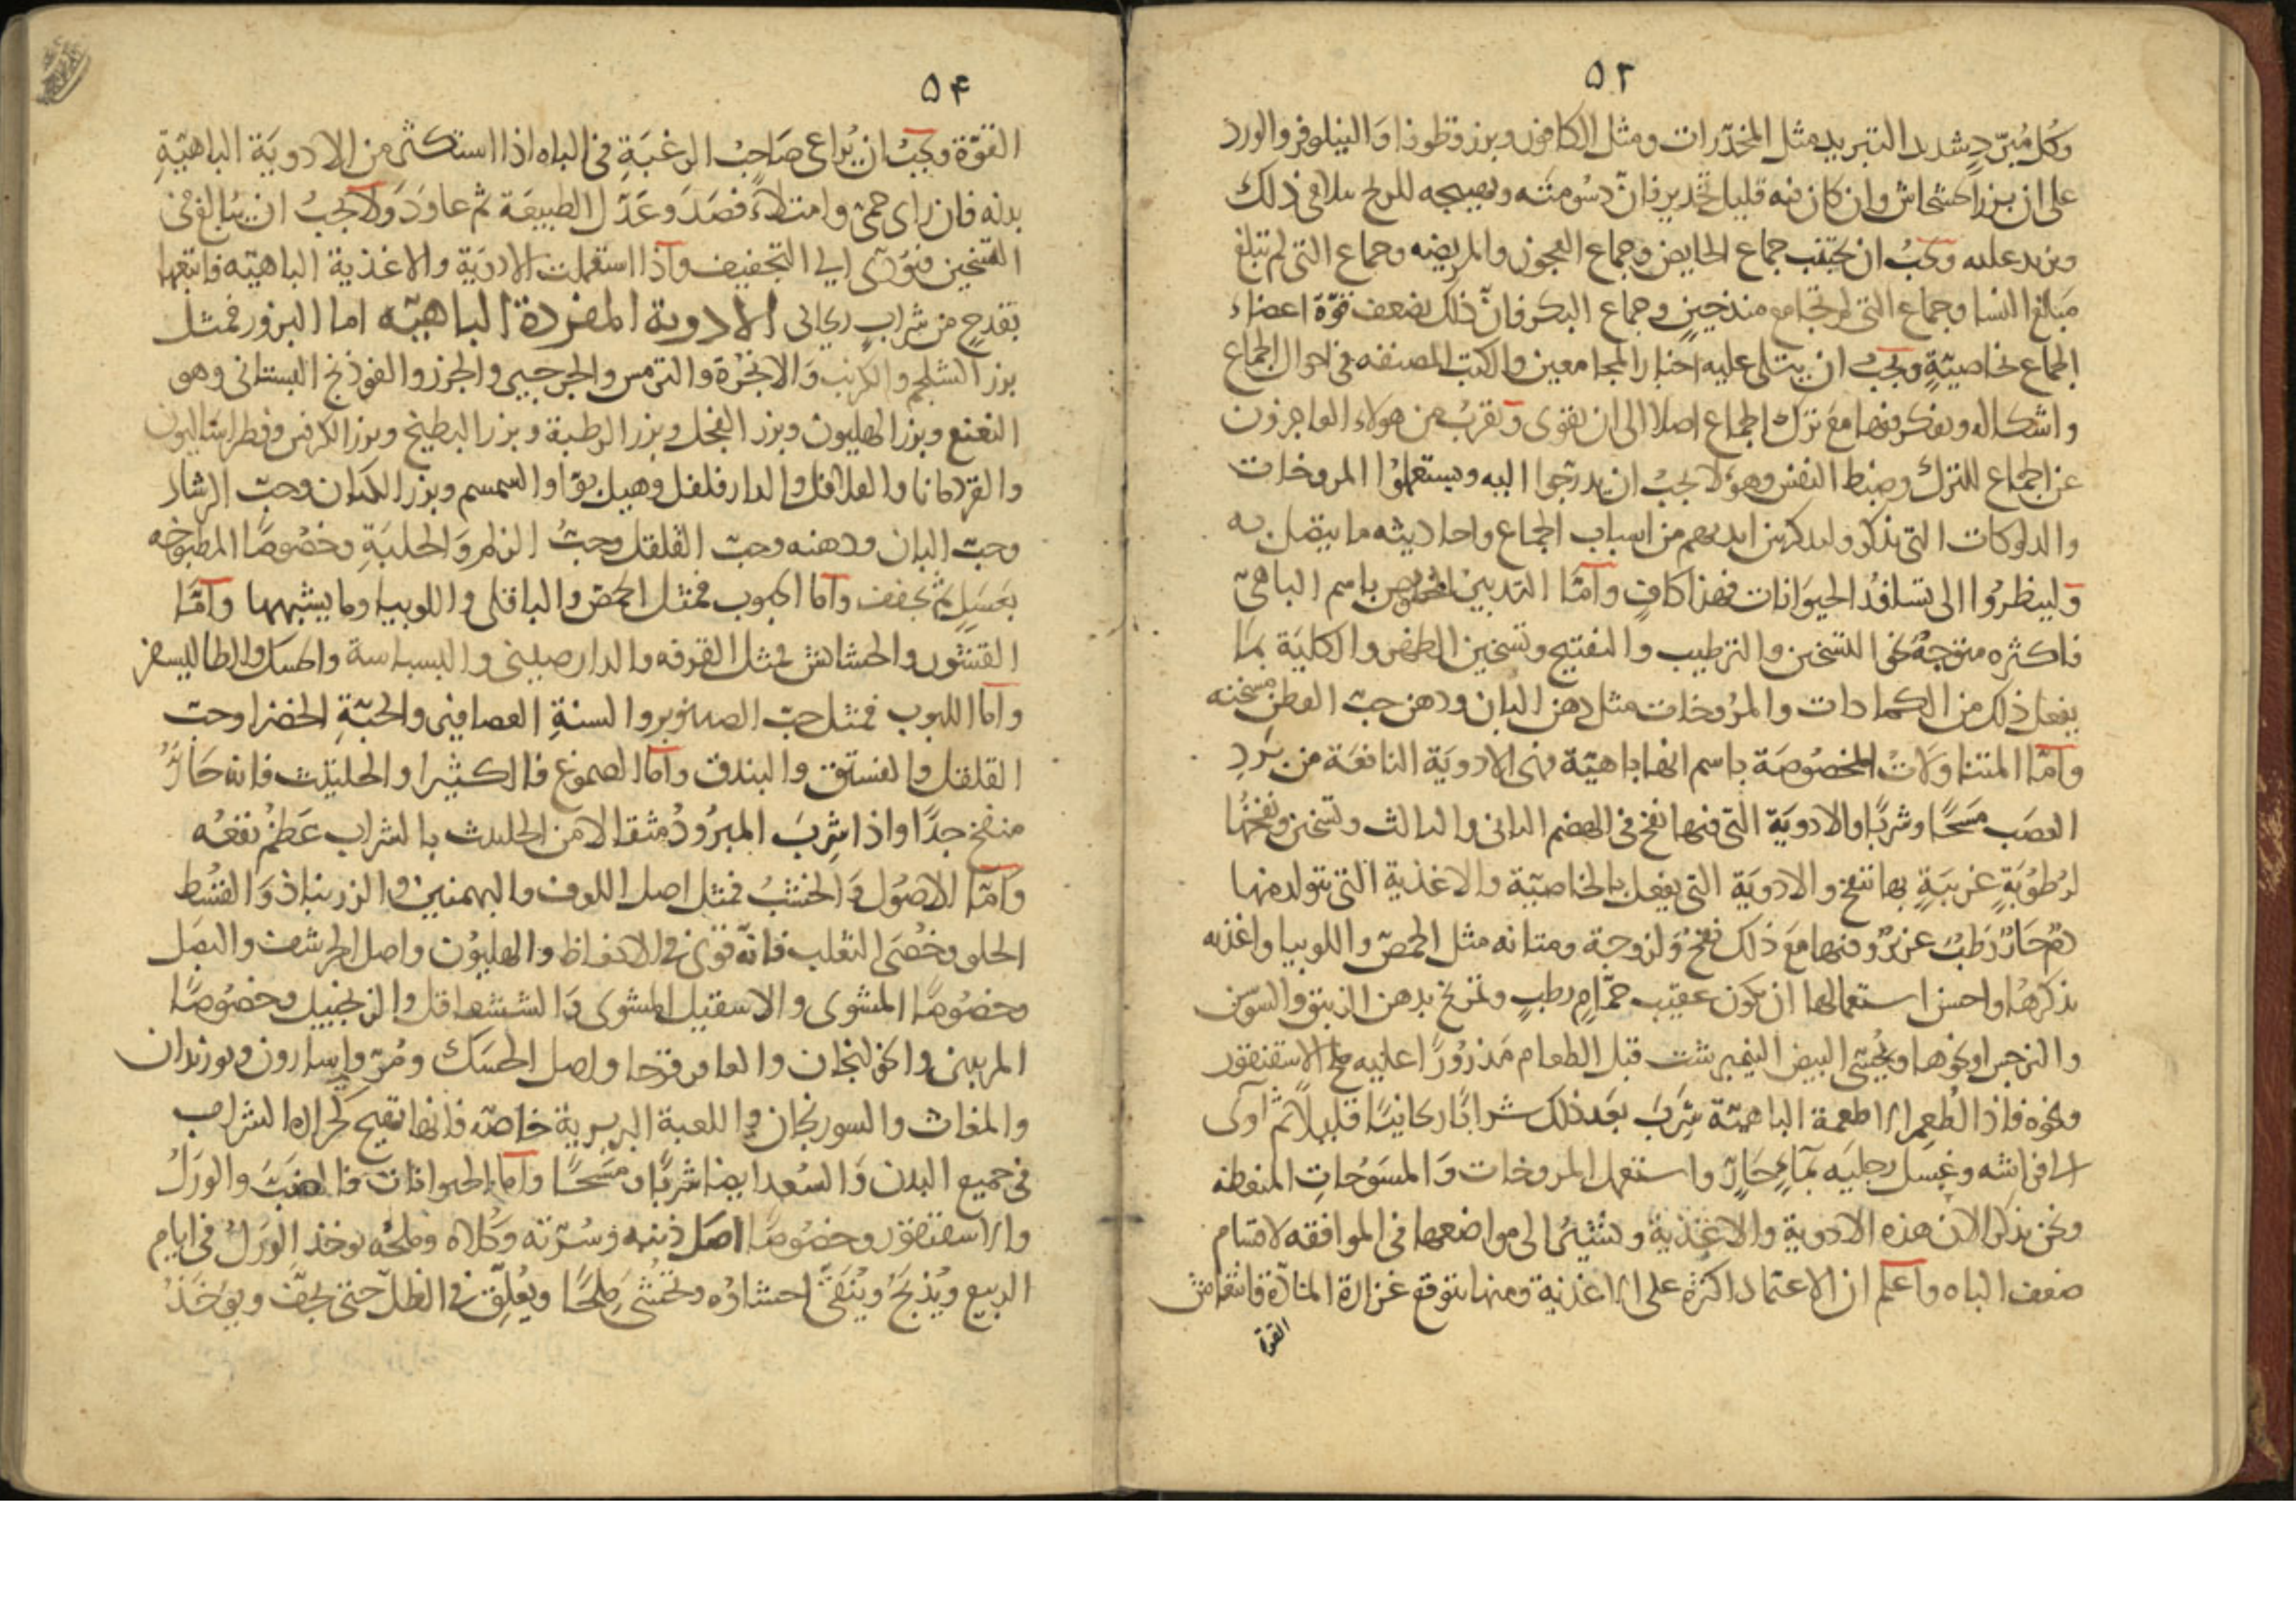 ٥٢
وكل مبرّدٍ شديد التبريد مثل المخدّرات ومثل الكافور وبزر قطونا والنيلوفر والورد
على ان بزر الخشخاش وان كان فيه قليل تخدير فانّ دسومته وتهييجه للريح يتلافى ذلك
ويزيد عليه ويجبُ ان يجتنب جماع الحايض وجماع العجوز والمريضه وجماع التى لم تبلغ
مبلغ النسا وجماع التى لم تجامع منذ حينٍ وجماع البكر فانّ ذلك يضعف قوّة اعضاء
الجماع بخاصيّةٍ ويجبُ ان يتلى عليه اخبار المجامعين والكتب المصنفه فى احوال الجماع
واشكاله ويفكر فيها مع ترك الجماع اصلا الى ان يقوى ويقربُ من هولاء العاجزون
عن الجماع للترك وضبط النفس وهؤلا يجبُ ان يدرّجوا اليه ويستعملوُا المروخات
والدلوكات التى نذكر وليذكر بين ايديهم من اسباب الجماع واحاديثه ما يتصل به
ولينظرُوا الى تسافدُ الحيوَانات فهذا كافٍ وامّا التدبيرُ المخصوص باسم الباهىّ
فاكثره متوجهُ نحو التسخين والترطيب والنفتيح وتسخين الظهر والكليَة بما
يفعل ذلك من الكمادات والمرُوخات مثل دهن البان ودهن حبّ القطن مسخنه
وامّا المتناوَلاتُ المخصُوصَة باسم انها باهيّة فهى الادويَة النافعَة من بَردِ
العصَب مَسحًا وشربًا والادويَة التى فيها نفخ فى الهضم الثانى والثالث وتسخين ونفخُها
لرُطوبَةٍ غريبَةٍ بها تنفخ والادويَة التى يفعل بالخاصيّة والاغذية التى يتولد منها
دمٌ حَارٌ رَطبٌ غزيرٌ وفيها مَعَ ذلك نفخٌ ولزوجة ومتانه مثل الحمّص واللوبيا واغذيه
نذكرهَا واحسن استعمالها ان يكون عقيب حمّامٍ رطبٍ وتمريخ بدهن الزنبق والسوسن
والنرجس او نحوها ويُحسّى البيض النيمبرشت قبل الطعام مَذرُورًا عليه ملح الاسقنقور
ونحوه فاذا طُعم الاطعمة الباهيّة شربَ بعد ذلك شرابًا ريحانيًا قليلًا ثم اوى
الى فراشه وغسل رجليه بمآءٍ حَارٍ واستعمل المروخات وَالمسُوحَاتِ المنعظه
ونحن نذكر الان هذه الادوية والاغذية ونشيرُ الى مواضعها فى الموافقه لاقسام
ضعف الباه واعلم ان الاعتماد اكثره على الاغذية ومنها يتوقع غزارة المادّة وانتعاش
القوة
٥۴
القوّة ويجبُ ان يُراعى صَاحبُ الرغبَةِ فى الباه اذا استكثر من الادويَة الباهيّةِ
بدنه فان راى حمىً وامتلاءً فصَدَ وعَدّل الطبيعَة ثم عاوَدَ وَلا يجبُ ان يبالغ فى
التسخين فيؤدّى الى التجفيف وَاذا استعملت الادويَة والاغذية الباهيّه فاتبعها
بقدحٍ من شرابٍ ريحانى الادوية المفردة الباهيّه اما البزور فمثل
بزر الشلجم والكرنب وَالانجُرَة والترمس والجرجير والجزر والفوذنج البستانى وهو
النعنع وبزر الهليون وبزر الفجل وبزر الرطبة وبزر البطيخ وبزر الكرفس وفطراساليون
والقردمانا والفلافل والدارفلفل وهيل بوّا والسمسم وبزر الكتان وحبّ الرشاد
وحبّ البان ودهنه وحبّ القلقل وحبُّ الزلم وَالحلبَةِ وخصُوصًا المطبوخه
بعسَلٍ ثم يجفف وامّا الحبوب فمثل الحمّص والباقلى واللوبيا وما يشبهها وامّا
القشور والحشائش فمثل القرفه والدارصينى والبسباسة والحسك والطاليسفر
وامّا اللبوب فمثل حبّ الصنوبر والسنةِ العصافير والحبّةِ الخضرا وحبّ
القلقل والفستق والبندق وامّا الصموغ فالكثيرا والحلتيت فانه حَارٌّ
منفخ جدًا واذا شربَ المبرُودُ مثقالا من الحلتيت بالشراب عَظمُ نفعُه
وامّا الاصُول وَالخشبُ فمثل اصل اللوف والبهمنين والزرنباذ وَالقسُط
الحلو وخُصَى الثعلب فانّه قوىّ فى الانعاظ والهليوُن واصل الحرشف والبصَل
وخصُوصًا المشوى والاسقيل المشوى وَالششقاقل والزنجبيل وخصُوصًا
المربين والخولنجان والعاقرقرحا واصل الحسَك ومُرّ واسارون وبوزيدان
والمغاث والسورنجان واللعبة البربرية خاصّه فانها تهيج كحراره الشراب
فى جميع البدن وَالسُعد ايضا شربًا ومَسَحًا وامّا الحيوانات فالضبّ والورَلُ
والاسقنقور وخصُوصًا اصَل ذنبه وسُرّته وكُلاه وملحُه يوخذ الورَلُ فى ايام
الربيع ويُذبحَ وَيُنَقىّ احشاؤه ويحُشىَ مِلحًا ويُعلِّق فى الظلّ حتى يجفّ ويوخَذُ